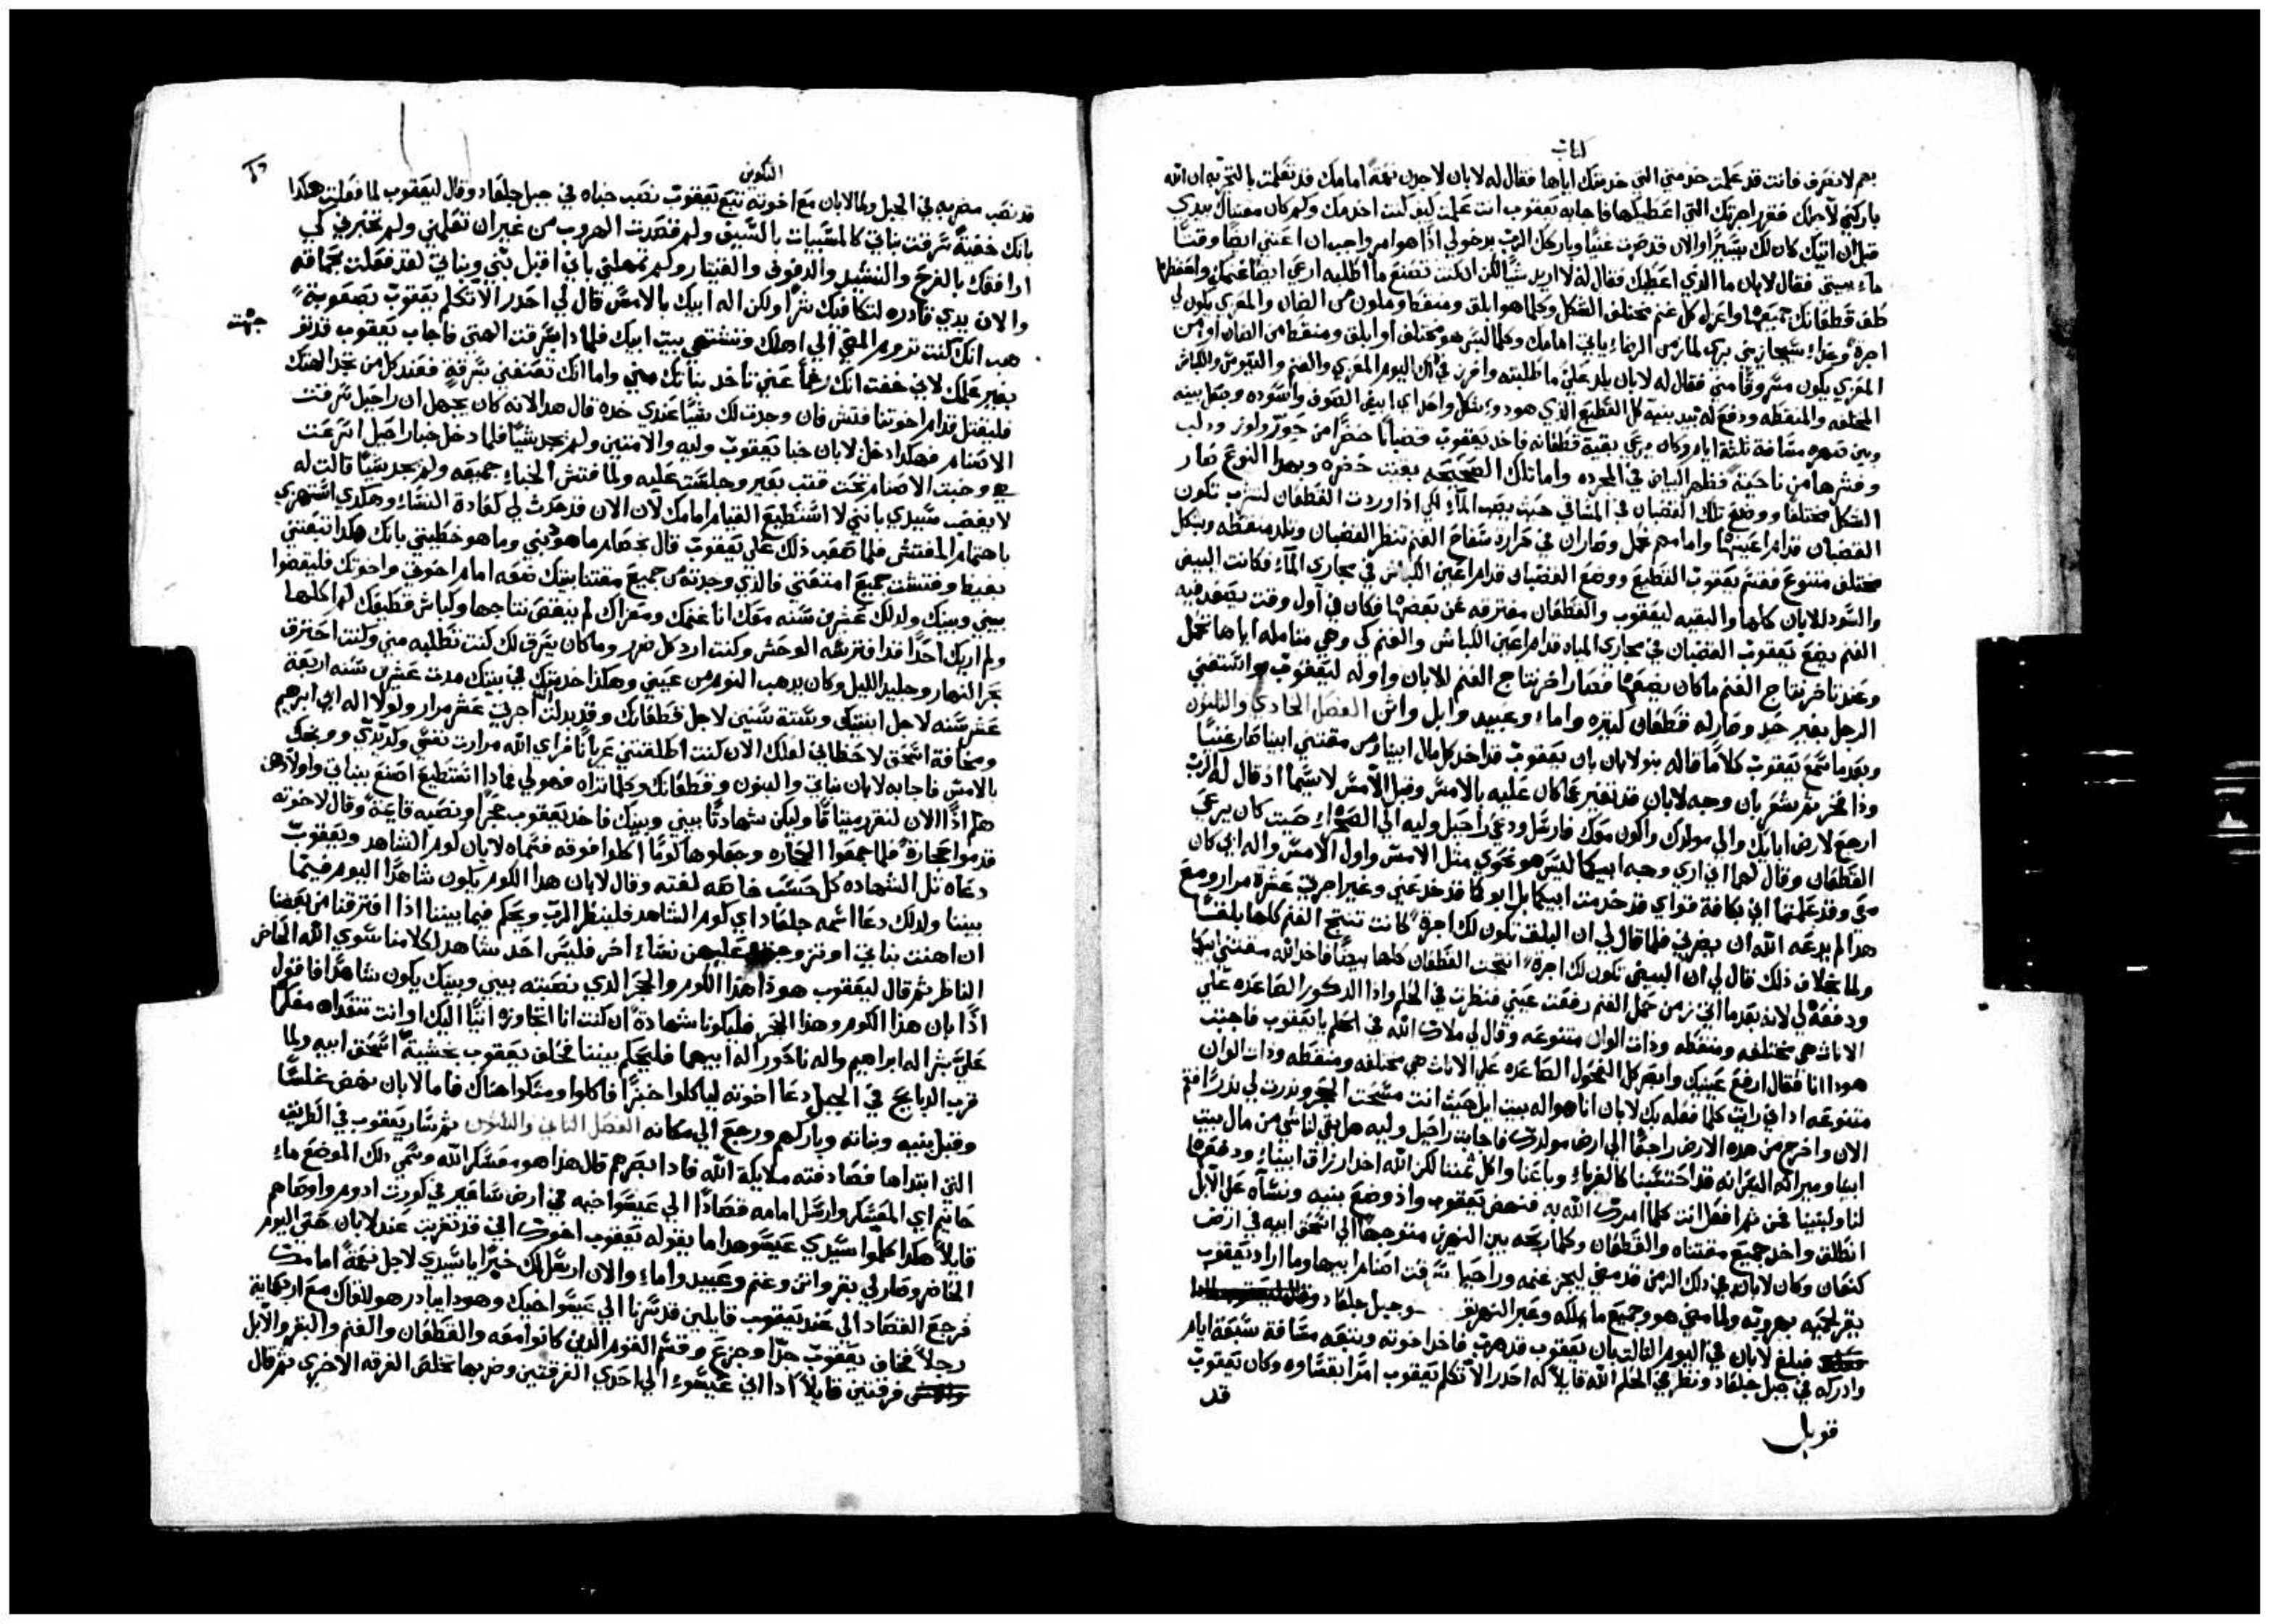 كتاب
بهم لانصرف فانت قد علمت خدمتي التي خدمتك اياها فقال له لابان لاجدن نعمةً امامك قد تعلمت بالتجربه ان الله
باركني لاجلك فقرر اجرتك التي اعطيكها فاجابه يعقوب انت علمت كيف كنت اخدمك وكم كان مقتناك بيدي
قبل ان اتيك كان لك يسيرًا والان قد صرت غنيًا وباركك الرب بدخولي اذًا هو امر واجب ان اعتني ايضًا وقتًا
ما بيتي فقال لابان ما الذي اعطيك فقال له لا اريد شيًا لكن ان كنت تصنع ما اطلبه ارعي ايضًا غنمك واحفظها
طف قطعانك جميعها واعزل كل غنم مختلف الشكل وكلما هو ابلق ومنقط وملون من الضان والمعزي يكون لي
اجرةً وغداء سيجازيني بري لما زمن الرضاء ياتي امامك وكلما ليس هو مختلف او ابلق ومنقط من الضان او من
المعزي يكون مسروقًا مني فقال له لابان يلد علي ما طلبته وافرز في ذلك اليوم المعزي والغنم والتيوس والكباش
المختلفه والمنقطه ودفع له بيد بنيه كل القطيع الذي هو ذو شكل واحد اي ابيض الصوف واسوده وجعل بينه
وبين صهره مسافة ثلثة ايام وكان يرعي بقية قطعانه فاخد يعقوب قضبانًا خضرًا من حور ولوز ودلب
وقشرها من ناحيةً فظهر البياض في المجرده واما تلك الصحيحه بقيت خضره وبهذا النوع صار
الشكل مختلفًا ووضع تلك القضبان في المساقي حيث يصب المآء لكي اذا وردت القطعان لتشرب تكون
القضبان قدام اعينها وامامهم تحمل وصار ان في حرارة سفاح الغنم تنظر القضبان وتلد منقطه وبشكل
مختلف متنوع فقسم يعقوب القطيع ووضع القضبان قدام اعين الكباش في مجاري المآء فكانت البيض
والسود للابان كلها والبقيه ليعقوب والقطعان مفترقه عن بعضها فكان في آول وقت يصعد فيه
الغنم يضع يعقوب القضبان في مجاري المياه قدام اعين الكباش والغنم كي وهي متامله اياها تحمل
وعند تاخر نتاج الغنم ما كان يضعها فصار اخر نتاج الغنم للابان واوله ليعقوب واستغني
الرجل بغير حد وصار له قطعان كثيره واماء وعبيد وابل واتن الفصل الحادي والثلثون
وبعد ما سمع يعقوب كلامًا قاله بنو لابان بان يعقوب قد اخد كل مال ابينا ومن مقتني ابينا صار غنيًا
وذا فخر ثم شعر بان وجه لابان قد تغير عما كان عليه بالامس وقبل الآمس لاسيما اذ قال له الرب
ارجع لارض ابايك والي مولدك واكون معك فارسل ودعي راحيل وليه الي الصحراء حيث كان يرعي
القطعان وقال لهما اني اري وجه ابيكما ليس هو نحوي مثل الامس واول الآمس واله ابي كان
معي وقد علمتما اني بكافة قواي قد خدمت ابيكما بل ابوكما قد خدعني وغير اجرتي عشرة مرار ومع
هدا لم يدعه الله ان يضرني فلما قال لي ان البلق تكون لك اجرةً كانت تنتج الغنم كلها بلقًا
ولما بخلاف ذلك قال لي ان البيض تكون لك اجرةً انتجت القطعان كلها بيضًا فاخد الله مقتني ابيكما
ودفعه لي لانه بعد ما اتي زمن حمل الغنم رفعت عيني فنظرت في الحلم واذا الدكور الصاعده علي
الاناث هي مختلفه ومنقطه وذات الوان متنوعه وقال لي ملاك الله في الحلم يا يعقوب فاجبت
هودا انا فقال ارفع عينيك وابصر كل الفحول الصاعده علي الاناث هي مختلفه ومنقطه وذات الوان
متنوعه اد اني رايت كلما فعله بك لابان انا هو اله بيت ايل حيث انت مسحت الحجر وندرت لي ندرًا فقم
الان واخرج من هده الارض راجعًا الي ارض مولدك فاجابت راحيل وليه هل بقي لنا شي من مال بيت
ابينا وميراثه اليس انه قد احتسبنا كالغرباء وباعنا واكل ثمننا لكن الله اخد ارزاق ابينا ودفعها
لنا ولبنينا نحن ثم افعل انت كلما امرك الله به فنهض يعقوب واذ وضع بنيه ونساه علي الآبل
انطلق واخد جميع مقتناه والقطعان وكلما ربحه بين النهرين متوجهًا الي اسحق ابيه في ارض
كنعان وكان لابان في ذلك الزمن قد مضي ليجز غنمه وراحيل سرقت اصنام ابيها وما اراد يعقوب
يقر لحميه بهروبه ولما مضي هو وجميع ما يملكه وعبر النهر نحو جبل جلعاد
فبلغ لابان في اليوم الثالث بان يعقوب قد هرب فاخد اخوته وتبعه مسافة سبعة ايام
وادركه في جبل جلعاد ونظر في الحلم الله قايلاً له احدر الا تكلم يعقوب امرًا بقساوه وكان يعقوب
قد
قوبل
التكوين
قد نصب مضربه في الجبل ولما لابان مع اخوته تبع يعقوب نصب خباه في جبل جلعاد وقال ليعقوب لما فعلت هكذا
بانك خفيةً سرقت بناتي كالمسبيات بالسيف ولم قصدت الهروب من غير ان تعلمني ولم تخبرني لكي
ارافقك بالفرح والنشيد والدفوف والقيتار ولم تمهلني بان اقبل بنيَّ وبناتي لقد فعلت بحماقه
والان يدي قادره لتكافيك شرًا ولكن اله ابيك بالامس قال لي احدر الا تكلم يعقوب بصعوبةً
جهت
هب انك كنت تروم المضي الي اهلك وتشتهي بيت ابيك فلماذا سرقت الهتي فاجاب يعقوب قد نفر
بغير علمك لاني خفت انك رغمًا عني تاخد بناتك مني واما انك تعنفني بسرقةٍ فعند كل من تجد الهتك
فليقتل قدام اخوتنا فتش فان وجدت لك شيًا عندي خده قال هدا لانه كان يجهل ان راحيل سرقت
الاصنام فهكدا دخل لابان خبا يعقوب وليه والامتين ولم يجد شيًا فلما دخل خبا راحيل اسرعت
هي وخبت الاصنام تحت قتب بعير وجلست عليه ولما فتش الخباء جميعه ولم يجد شيًا قالت له
لا يغضب سيدي بانني لا استطيع القيام امامك لان الان قد حدث لي كعادة النساء وهكدي استهزي
باهتمام المفتش فلما صعب ذلك علي يعقوب قال بخصام ما هو ذنبي وما هو خطيتي بانك هكدا تتبعني
بغيظ وفتشت جميع امتعتي فالذي وجدته من جميع مقتنا بيتك ضعه امام اخوتي واخوتك فليقضوا
بيني وبينك ولدلك عشرين سنه معك انا غنمك ومعزاك لم ينقص نتاجها وكباش قطيعك لم اكلها
ولم اريك احدًا قد افترسه الوحش وكنت ارد كل ضرر وما كان يسرق لك كنت تطلبه مني وكنت احترق
بحر النهار وجليد الليل وكان يدهب النوم من عيني وهكذا خدمتك في بيتك مدت عشرين سنه اربعة
عشر سنه لاجل ابنتيك وستة سنين لاجل قطعانك وقد بدلت اجرتي عشر مرار ولولا اله ابي ابرهيم
ومخافة اسحق لاحظاني لعلك الان كنت اطلقتني عريانًا فراي الله مرارت نفسي وكد يدي ووبخك
بالامس فاجابه لابان بناتي والبنون وقطعانك وكلما تراه فهو لي فماذا استطيع اصنع ببناتي واولادهن
هلم اذًا الان لنقرر ميثاقًا وليكن شهادتًا بيني وبينك فاخد يعقوب حجرًا ونصبه قاعةً وقال لاخوته
قدموا حجارةً فلما جمعوا الحجاره وجعلوها كومًا اكلوا فوقه فسماه لابان كوم الشاهد ويعقوب
دعاه تل الشهاده كل حسب خاصة لغته وقال لابان هدا الكوم يكون شاهدًا اليوم فيما
بيننا ولدلك دعا اسمه جلعاد اي كوم الشاهد فلينظر الرب ويحكم فيما بيننا اذا افترقنا من بعضنا
ان اهنت بناتي او تزوجت عليهن نساء اخر فليس احد شاهد لكلامنا سوي الله الحاضر
الناظر ثم قال ليعقوب هوذا هدا الكوم والحجر الدي نصبته بيني وبينك يكون شاهدًا فاقول
اذًا بان هذا الكوم وهذا الحجر فليكونا شهادةً ان كنت انا اتجاوزه اتيًا اليك او انت تتعداه مفكرًا
عليَّ بشر اله ابراهيم واله ناحور اله ابيهما فليحكم بيننا فحلف يعقوب بخشيةً اسحق ابيه ولما
قرب الدبايح في الجبل دعا اخوته لياكلوا خبزًا فاكلوا ومكثوا هناك فاما لابان نهض غلسًا
وقبل بنيه وبناته وباركهم ورجع الي مكانه الفصل الثاني والثلثون ثم سار يعقوب في الطريق
التي ابتداها فصادفته ملايكة الله فاد ابصرهم قال هذا هو معسكر الله وسمي ذلك الموضع ماء
حانيم اي المعسكر وارسل امامه قصادًا الي عيصو اخيه في ارض ساعير في كورت ادوم واوصاهم
قايلاً هكدا كلموا سيدي عيصو هدا ما يقوله يعقوب اخوك اني قد تغربت عند لابان حتي اليوم
الحاضر وصار لي بقر واتن وغنم وعبيد واماء والان ارسل لك خبرًا يا سيدي لاجد نعمةً امامك
فرجع القصاد الي عند يعقوب قايلين قد سرنا الي عيسو اخيك وهودا يبادر هو للقاك مع اربعماية
رجلاً فخاف يعقوب جدًا وجزع وقسم القوم الدين كانوا معه والقطعان والغنم والبقر والآبل
فرقتين قايلاً ادا اتي عيسو الي احدي الفرقتين وضربها تخلص الفرقه الاخري ثم قال